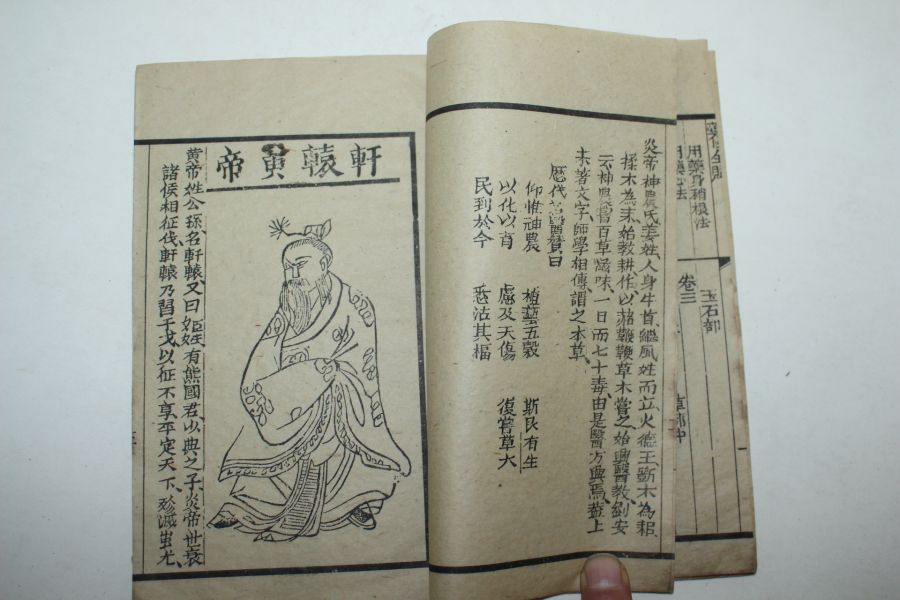 用藥身梢根法
玉石部
卷三
炎帝神農氏姜姓人身牛首繼風姓而立火德王斲木為耜
揉木為末始教耕作以赭鞭鞭草木嘗之始興醫教劉安
云神農嘗百草滋味一日而七十毒由是醫方興焉蓋上
未著文字師學相傳謂之本草
歷代名醫贊曰
仰惟神農 植藝五穀 斯民有生
以化以育 慮及夭傷 復嘗草木
民到於今 悉沾其福
軒轅黃帝
黃帝姓公孫名軒轅又曰姬姓有熊國君以典之子炎帝世衰
諸侯相征伐軒轅乃習干戈以征不享平定天下殄滅蚩尤